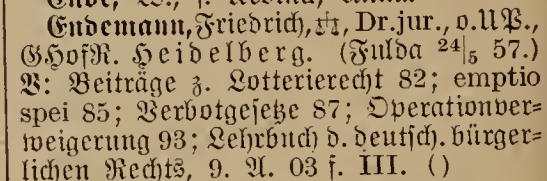 Endemann, Friedrich, Dr. jur., o.UP.,
GHofR. Heidelberg. (Fulda 24|5 57.)
V: Beiträge z. Lotterierecht 82; emptio
spei 85; Verbotgesetze 87; Operationver=
weigerung 93; Lehrbuch d. deutsch. bürger=
lichen Rechts, 9. A. 03 f. III. ()